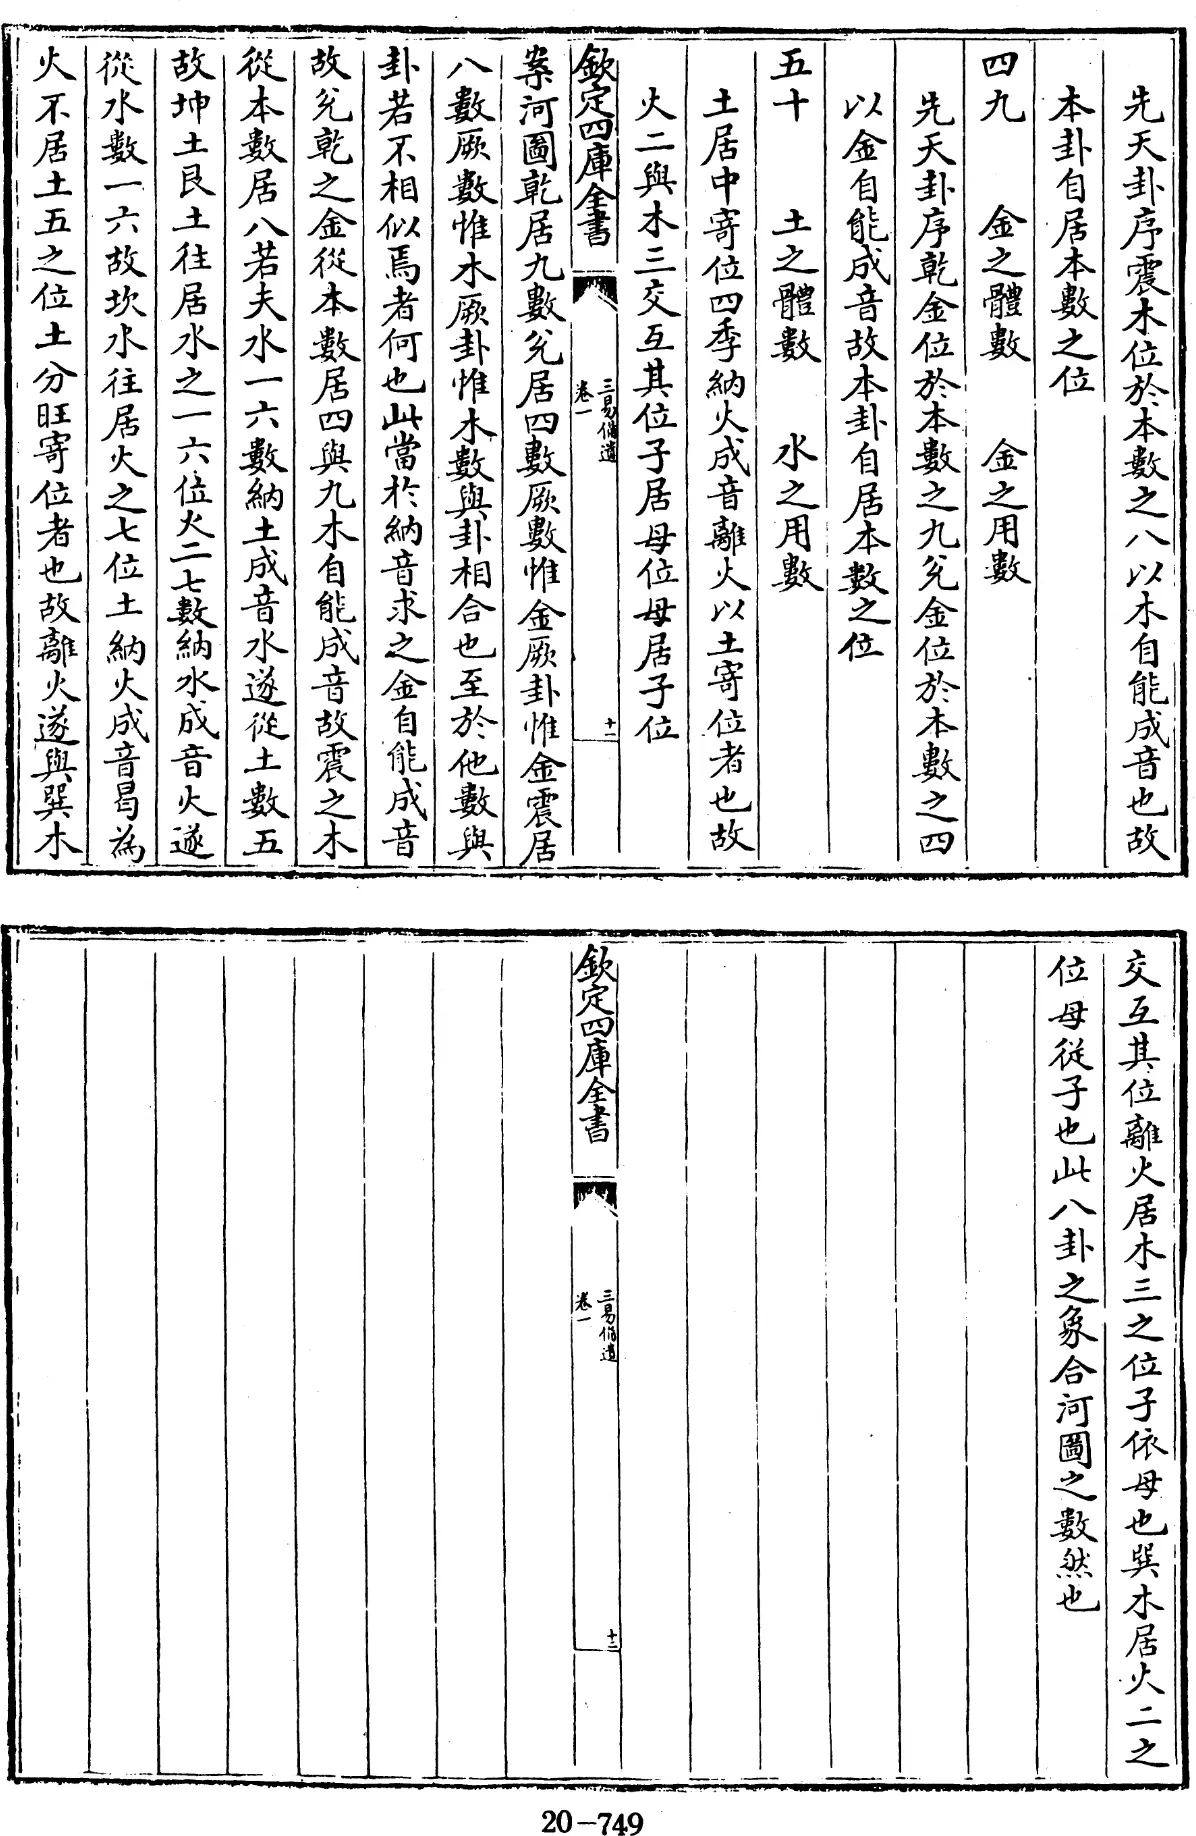 先天卦序震木位於本數之八以木自能成音也故
本卦自居本數之位
四九　金之體數　金之用數
先天卦序乾金位於本數之九兌金位於本數之四
以金自能成音故本卦自居本數之位
五十　土之體數　水之用數
土居中寄位四季納火成音離火以土寄位者也故
火二與木三交互其位子居母位母居子位
欽定四庫全書
三易備遺
卷一
十一
案河圖乾居九數兊居四數厥數惟金厥卦惟金震居
八數厥數惟木厥卦惟木數與卦相合也至於他數與
卦若不相似焉者何也此當於納音求之金自能成音
故兊乾之金從本數居四與九木自能成音故震之木
從本數居八若夫水一六數納土成音水遂從土數五
故坤土艮土往居水之一六位火二七數納水成音火遂
從水數一六故坎水往居火之七位土納火成音曷為
火不居土五之位土分旺寄位者也故離火遂與巽木
交互其位離火居木三之位子依母也巽木居火二之
位母從子也此八卦之象合河圖之數然也
欽定四庫全書
三易備遺
卷一
十二
20-749